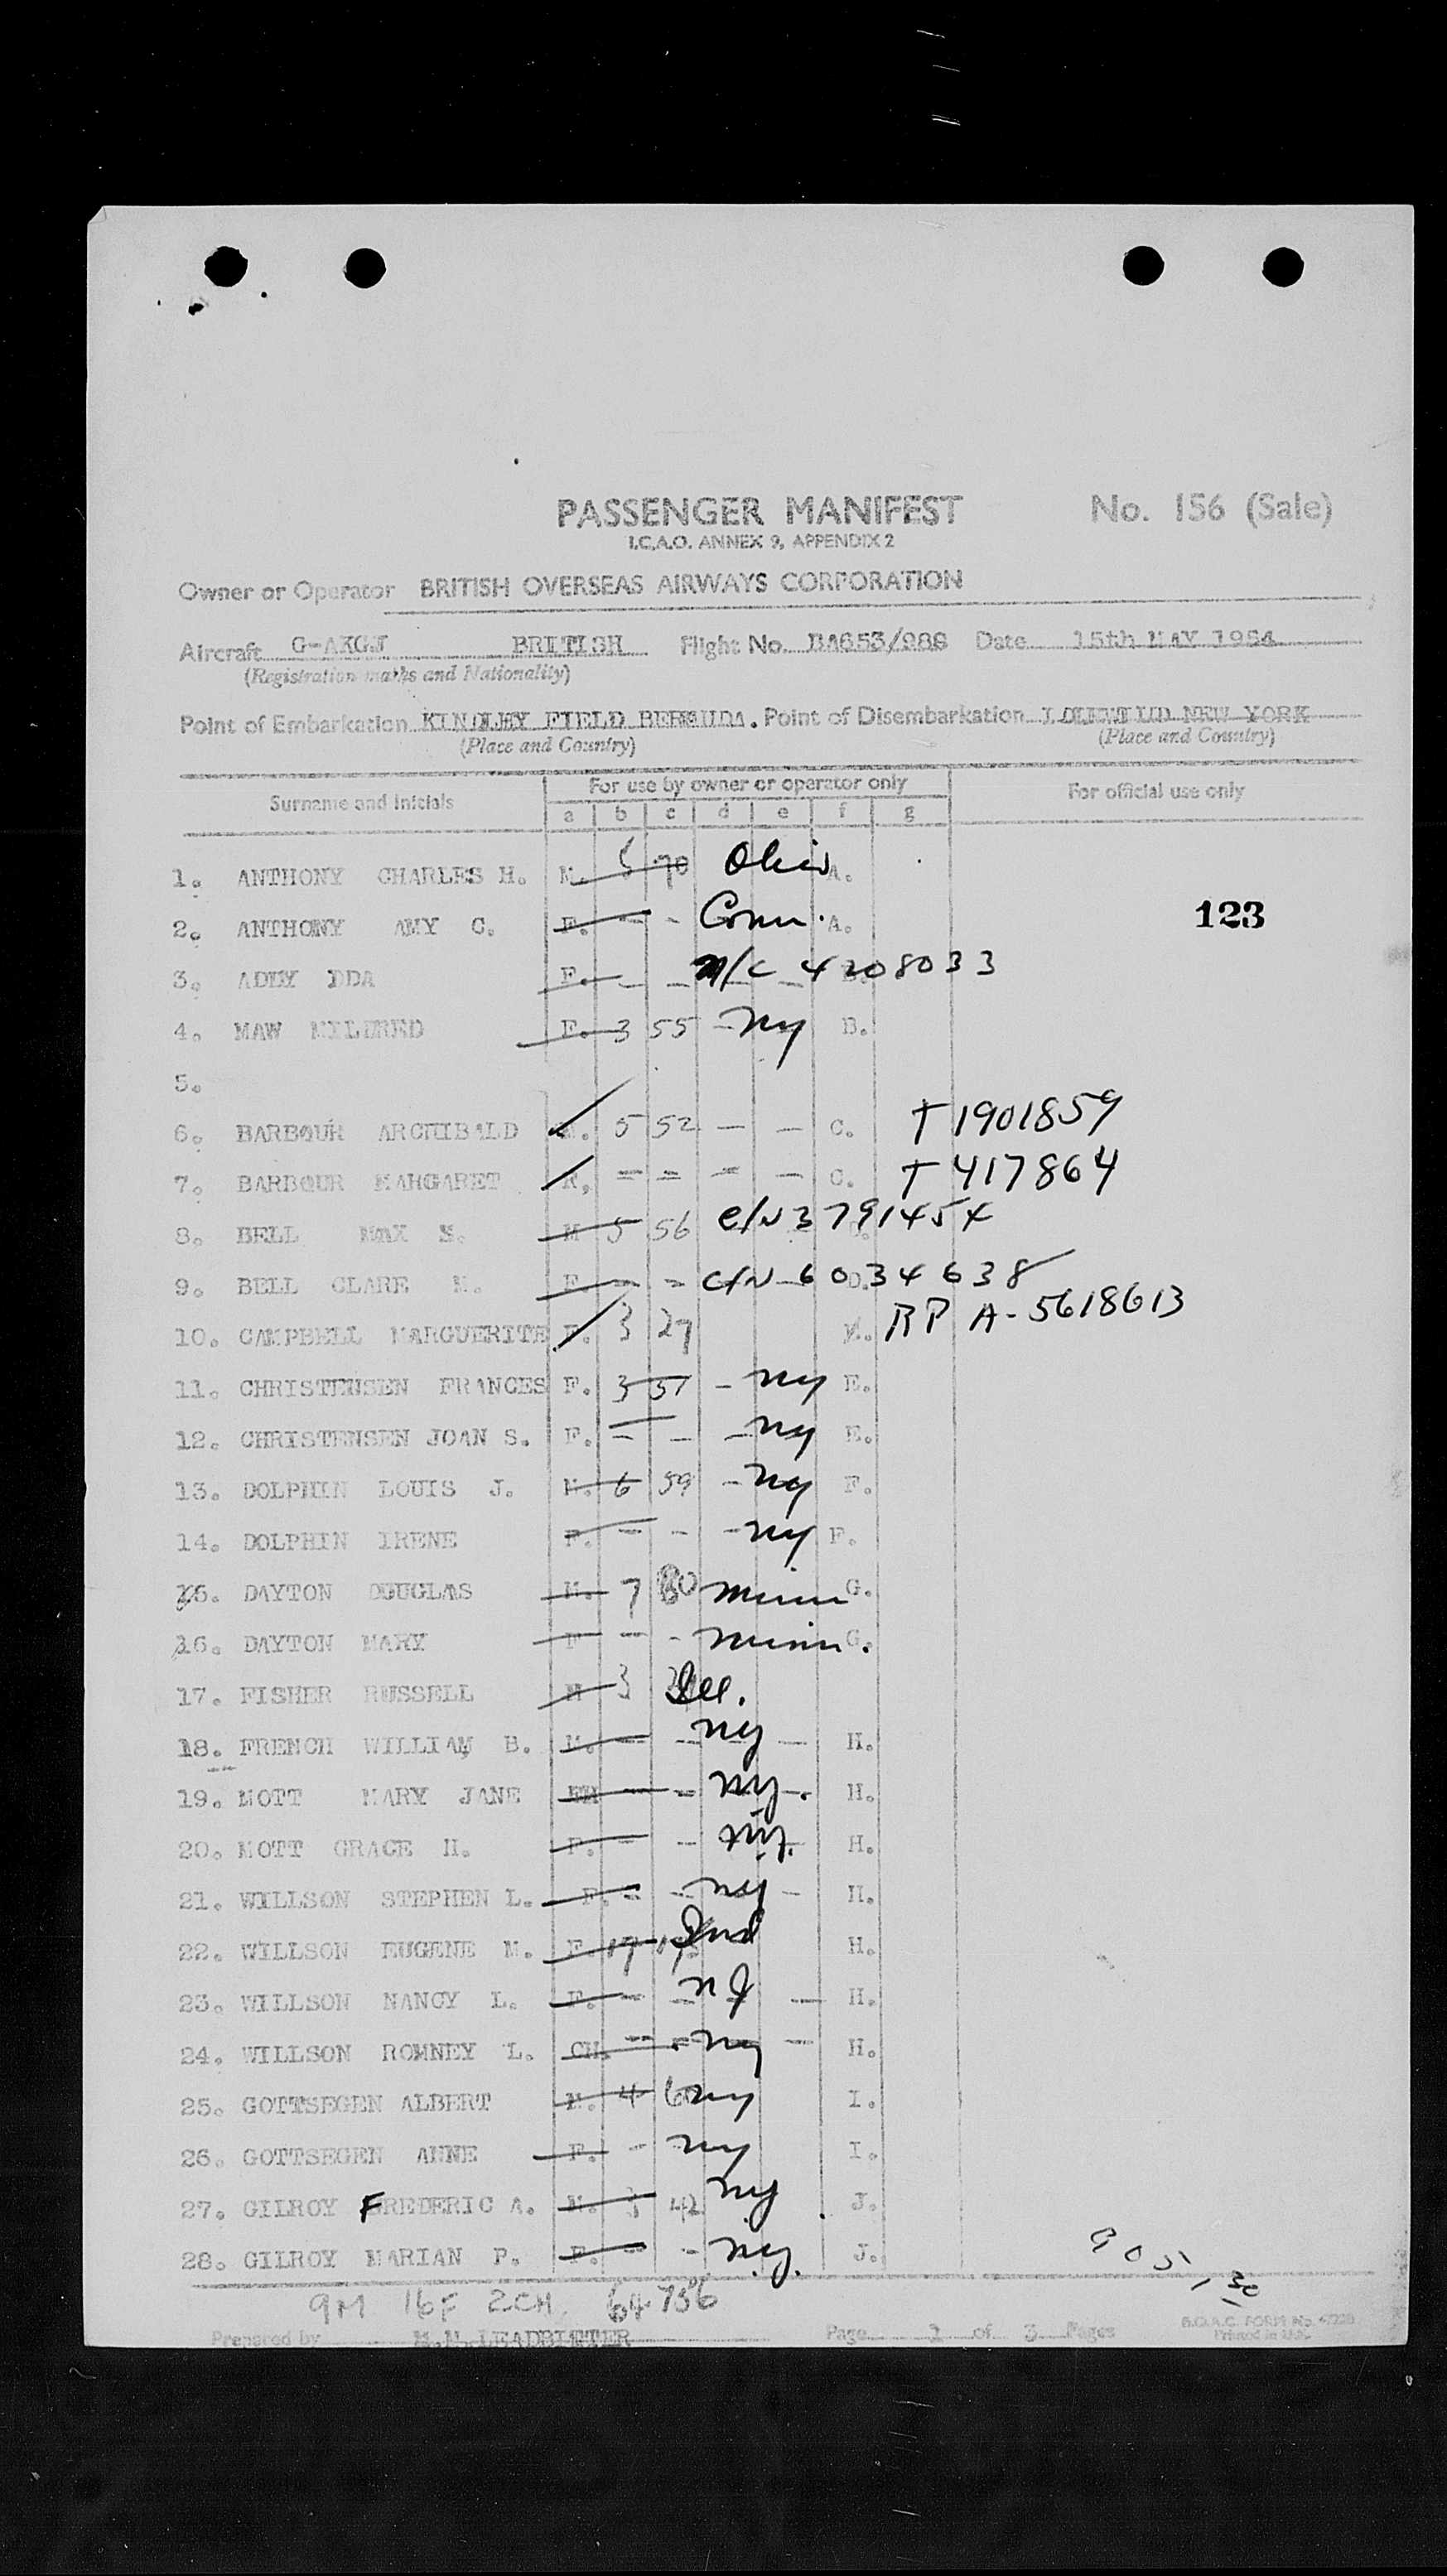 PASSENGER MANIFEST No. 156 (Sale)
I.C.A.O. ANNEX 9, APPENDIX 2
Owner or Operator BRITISH OVERSEAS AIRWAYS CORPORATION
Aircraft G-AKGJ BRITISH Flight No. BA653/988 Date 15th MAY 1954
(Registration marks and Nationality)
Point of Embarkation KINDLEY FIELD BERMUDA. Point of Disembarkation NEW YORK
(Place and Country) (Place and Country)
Surname and Initials For use by owner or operator only For official use only
a b c d e f g
1. ANTHONY CHARLES H. M. 70 Ohio A.
2. ANTHONY AMY C. F. — - Conn. A. 123
3. ADEY F. — — N/C 4208033
4. MAW MILDRED F. 3 55 - NY B.
5.
6. BARBOUR ARCHIBALD M. 5 52 — — C. T 1901859
7. BARBOUR MARGARET F. = = — — C. T 417864
8. BELL MAX M 5 56 C/N 3791454
9. BELL CLARE M. F. — = C/N 6034638 D.
10. CAMPBELL MARGUERITE F. 3 27 RP A-5618613
11. CHRISTENSEN FRANCES F. 3 51 - NY E.
12. CHRISTENSEN JOAN S. F. — — - NY E.
13. DOLPHIN LOUIS J. M. 6 59 - NY F.
14. DOLPHIN IRENE F. — - - NY F.
15. DAYTON DOUGLAS M. 7 80 Minn G.
16. DAYTON MARY F — - Minn. G.
17. FISHER RUSSELL M 3 Ill.
18. FRENCH WILLIAM B. M. — — NY — H.
19. MOTT MARY JANE — — NY. — H.
20. MOTT GRACE H. F. — — H.
21. WILLSON STEPHEN L. F. — — NY — H.
22. WILLSON EUGENE M. F. 19 Ind H.
23. WILLSON NANCY L. F. — — NJ — H.
24. WILLSON ROMNEY L. CH. — — NY — H.
25. GOTTSEGEN ALBERT M. 4 60 NY I.
26. GOTTSEGEN ANNE F. - NY I.
27. GILROY FREDERIC A. M. 3 42 NY J.
28. GILROY MARIAN P. F. — - N.Y. J.
905, 30
9M 16F 2CH. 64 756
Prepared by M.M. LEADBETTER Page 1 of 3 Pages
B.O.A.C. FORM No.
Printed in U.K.